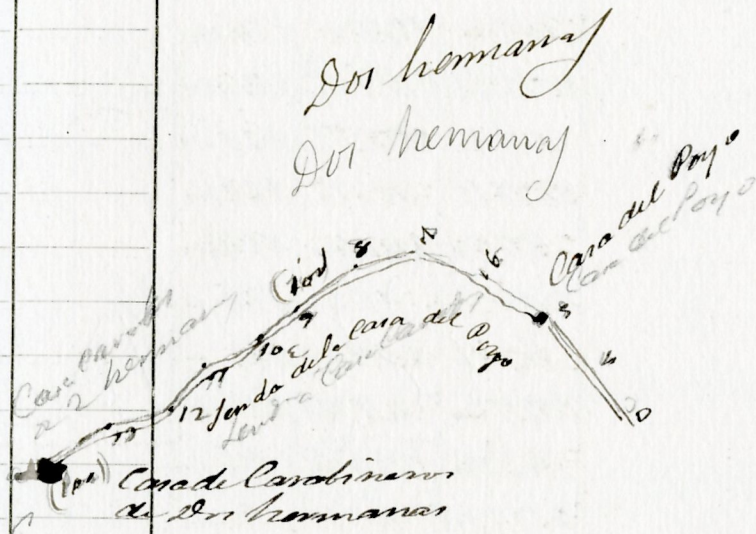 Dos hermanas
Dos hermanas
Casa del Poyo
Casa del Poyo
8
7
6
5
9
10
11
12
13
Senda de la Casa del
Poyo
Casa
2 hermanas
Casa de Carabineros
de Dos hermanas